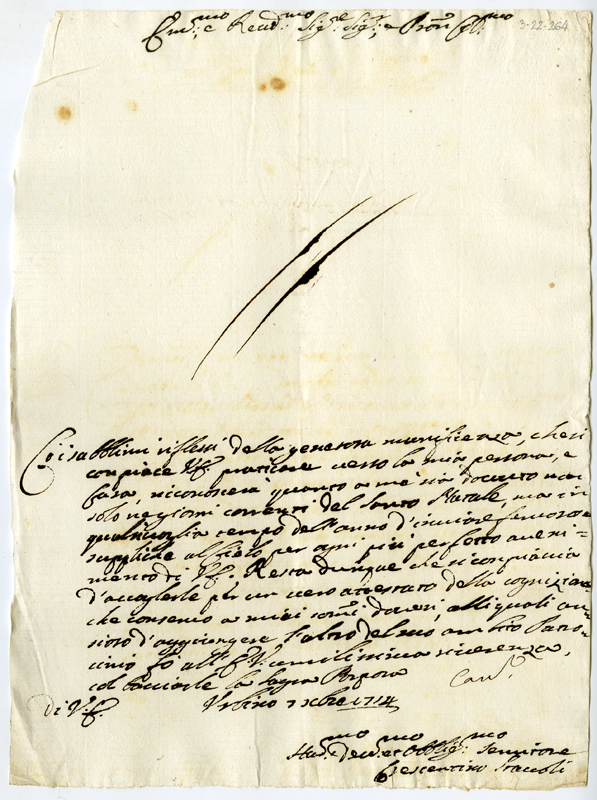 Em.mo e Rend.mo Sig.re Sig.r, e Pron Col.mo
3-22-264
Coi sublimi riflessi della generosa munificenza, che si
compiace V.E. praticare verso la mia persona, e
Casa, riconoscerà quanto a me sia dovuto non
solo ne giorni correnti del Santo Natale, ma in
qualsivoglia tempo dell'anno d'inviare fervorose
suppliche al Cielo per ogni più perfetto aveni-
mento di V.E. Resta dunque che si compiaccia
d'accoglierle per un vero attestato della cognizione
che conservo a miei doveri, alli quali an
sioso d'aggiungere l'altro del suo ambito Patro-
cinio fò all'E.V. umilissima riverenza,
col baciarle la Sagra Porpora
di V.E. Urbino Xbre 1714
Car.l
Hum.mo Dev.mo et Obblig.mo Servitore
Crescentino Staccoli